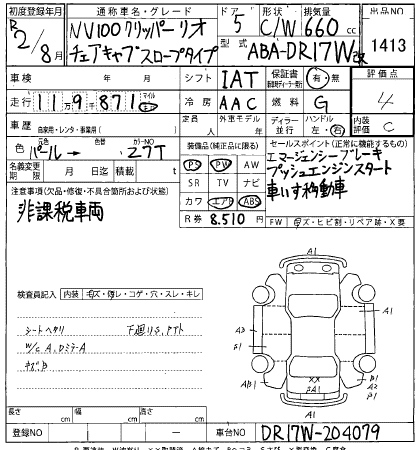 初度登録年月 通称車名・グレード ドア 形状 排気量 出品NO
R2/8月 NV100クリッパーリオ 5 C/W 660cc 1413
チェアキャブスロープタイプ 型式 ABA-DR17W改
車検 年 月 シフト IAT 保証書 有・無 評価点
走行 11万9千871 マイル km 冷房 AAC 燃料 G 4
車歴 自家用・レンタ・事業用( ) 定員 人 外車モデル 年 ディーラー 並行 ハンドル 左・右 内装評価 C
色 パール→ 色替 カラーNO Z7T 装備品(純正品に限る) セールスポイント(正常に機能するもの)
名義変更期限 月 日迄 積載 t PS PW AW エマージェンシーブレーキ
注意事項(欠品・修復・不具合箇所および状態) SR TV ナビ プッシュエンジンスタート
非課税車両 カワ エアB ABS 車いす移動車
R券 8.510 円 FW キズ・ヒビ割・リペア跡・X要
検査員記入 内装 キズ・傷・コゲ・穴・スレ・キレ
A1
シートヘタリ 下廻りS,Pアト
W/C A,Dミラ-A A2 A1
キズB B1 A1
AB1 XX B1
A1 A2
A1
長さ cm 幅 cm 高さ cm
登録NO ― 車台NO DR17W-204079